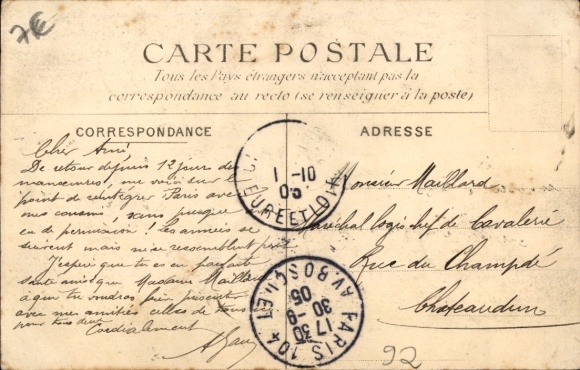 7€
CARTE POSTALE
Tous les Pays étrangers n'acceptant pas la
correspondance au recto (se renseigner à la poste)
CORRESPONDANCE
ADRESSE
Cher Ami
De retour depuis 12 jours des
manœuvres, me voici sur le
point de réintégrer Paris avec
mes cousins, sans presque
eu de permission ! les années se
suivent mais ne se ressemblent pas
J'espère que tu es en parfaite
santé ainsi que Madame Maillard
à qui tu voudras bien présenter
avec mes amitiés celles de tous
pour tous deux
Cordialement
Monsieur Maillard
Maréchal logis chef de Cavalerie
Rue du Champdé
Châteaudun
01-1
05
EURE ET LOIR
PARIS 104
AV. BOSQUET
17 30
30-9
05
92